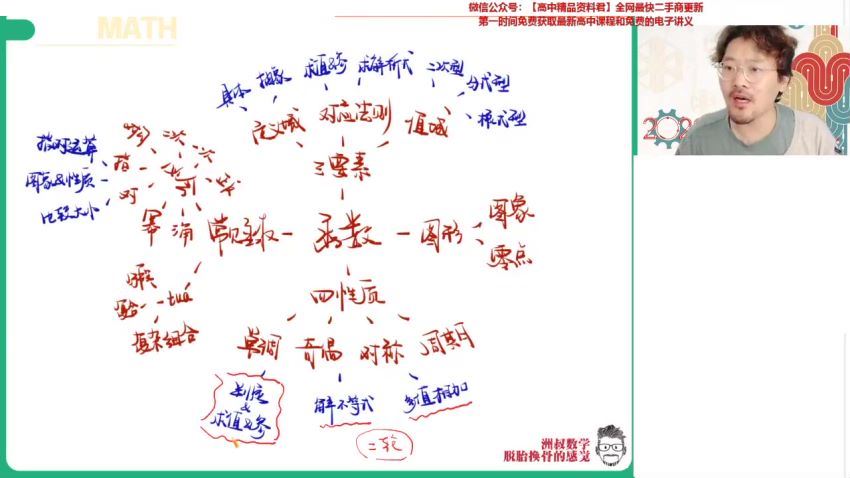 微信公众号：【高中精品资料君】全网最快二手商更新
第一时间免费获取最新高中课程和免费的电子讲义
MATH
具体 抽象 求值&参 求解析式 二次型
分式型
根式型
定义域 对应法则 值域
三要素
指对运算
图象&性质
比较大小
二次 一次
指
对
幂
常见函数 函数 图形
图象
零点
四性质
复杂组合
单调 奇偶 对称 周期
判定
&
求值&参
解不等式
多值相加
二轮
洲叔数学
脱胎换骨的感觉